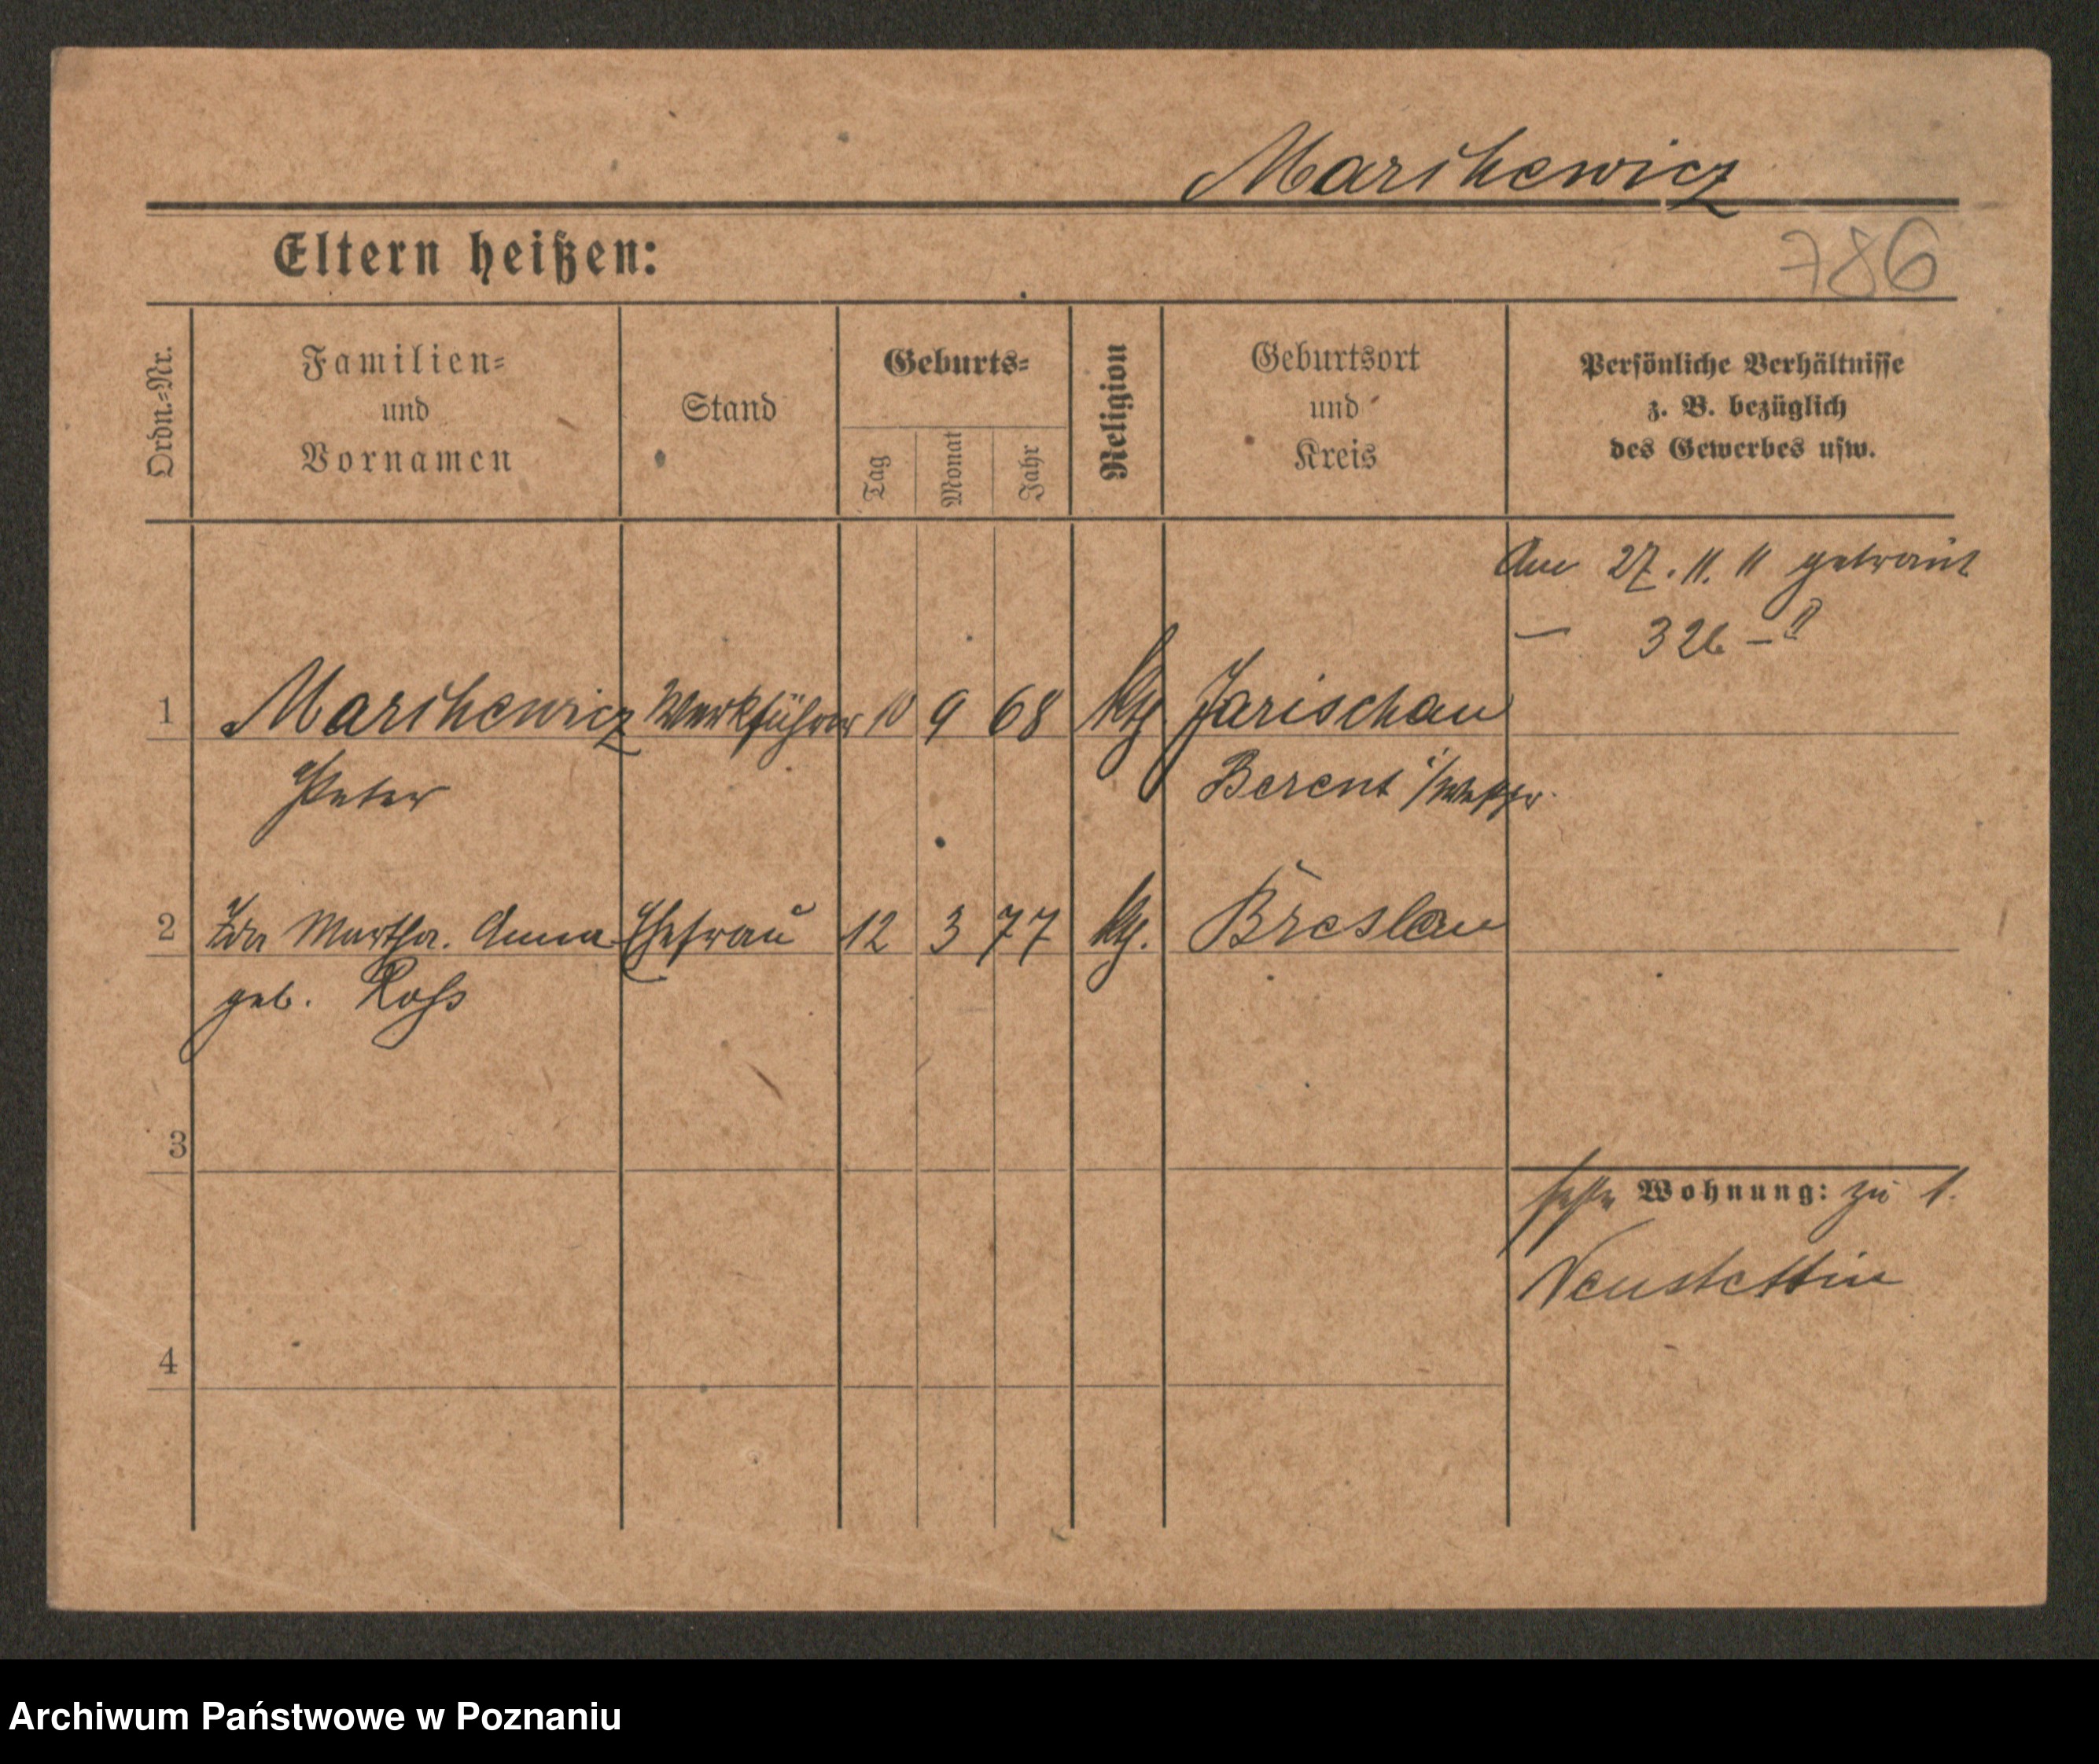 Marschewicz
Eltern heißen:
786
Ordn.-Nr.
Familien-
und
Vornamen
Stand
Geburts-
Tag
Monat
Jahr
Religion
Geburtsort
und
Kreis
Persönliche Verhältnisse
z. B. bezüglich
des Gewerbes usw.
Am 27. 11. 11 getraut
— 326 — 11
1 Marschewicz Werkführer 10 9 68 ktl Jarischau
Peter Berent i/Westpr.
2 Ida Martha. Anna Ehefrau 12 3 77 ktl. Breslau
geb. Roß
3
Wohnung: zu 1.
Neustettin
4
Archiwum Państwowe w Poznaniu